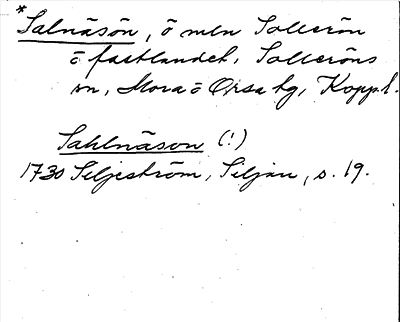 * Salnäsön, ö meln Sollerön
o fastlandet, Solleröns
sn, Mora o Orsa tg, Koppb.l.
Sahlnäson (!)
1730 Siljeström, Siljan, s. 19.